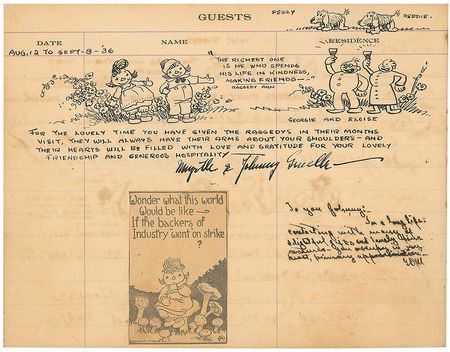 GUESTS
PEGGY
REDDIE.
DATE
NAME
RESIDENCE
AUG. 12 TO SEPT-8-'36
"THE RICHEST ONE
IS HE WHO SPENDS
HIS LIFE IN KINDNESS,
MAKING FRIENDS"
RAGGEDY ANN
GEORGIE AND ELOISE
FOR THE LOVELY TIME YOU HAVE GIVEN THE RAGGEDYS IN THEIR MONTHS
VISIT, THEY WILL ALWAYS HAVE THEIR ARMS ABOUT YOUR SHOULDERS - AND
THEIR HEARTS WILL BE FILLED WITH LOVE AND GRATITUDE FOR YOUR LOVELY
FRIENDSHIP AND GENEROUS HOSPITALITY
Myrtle & Johnny Gruelle
Wonder what this world
Would be like -
If the backers of
Industry went on strike
?
To you Johnny:-
In a long life